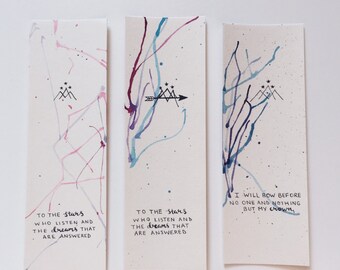 TO THE stars
WHO LISTEN AND
THE dreams THAT
ARE ANSWERED
TO THE stars
WHO LISTEN AND
THE dreams THAT
ARE ANSWERED
I WILL BOW BEFORE
NO ONE AND NOTHING
BUT MY crown.